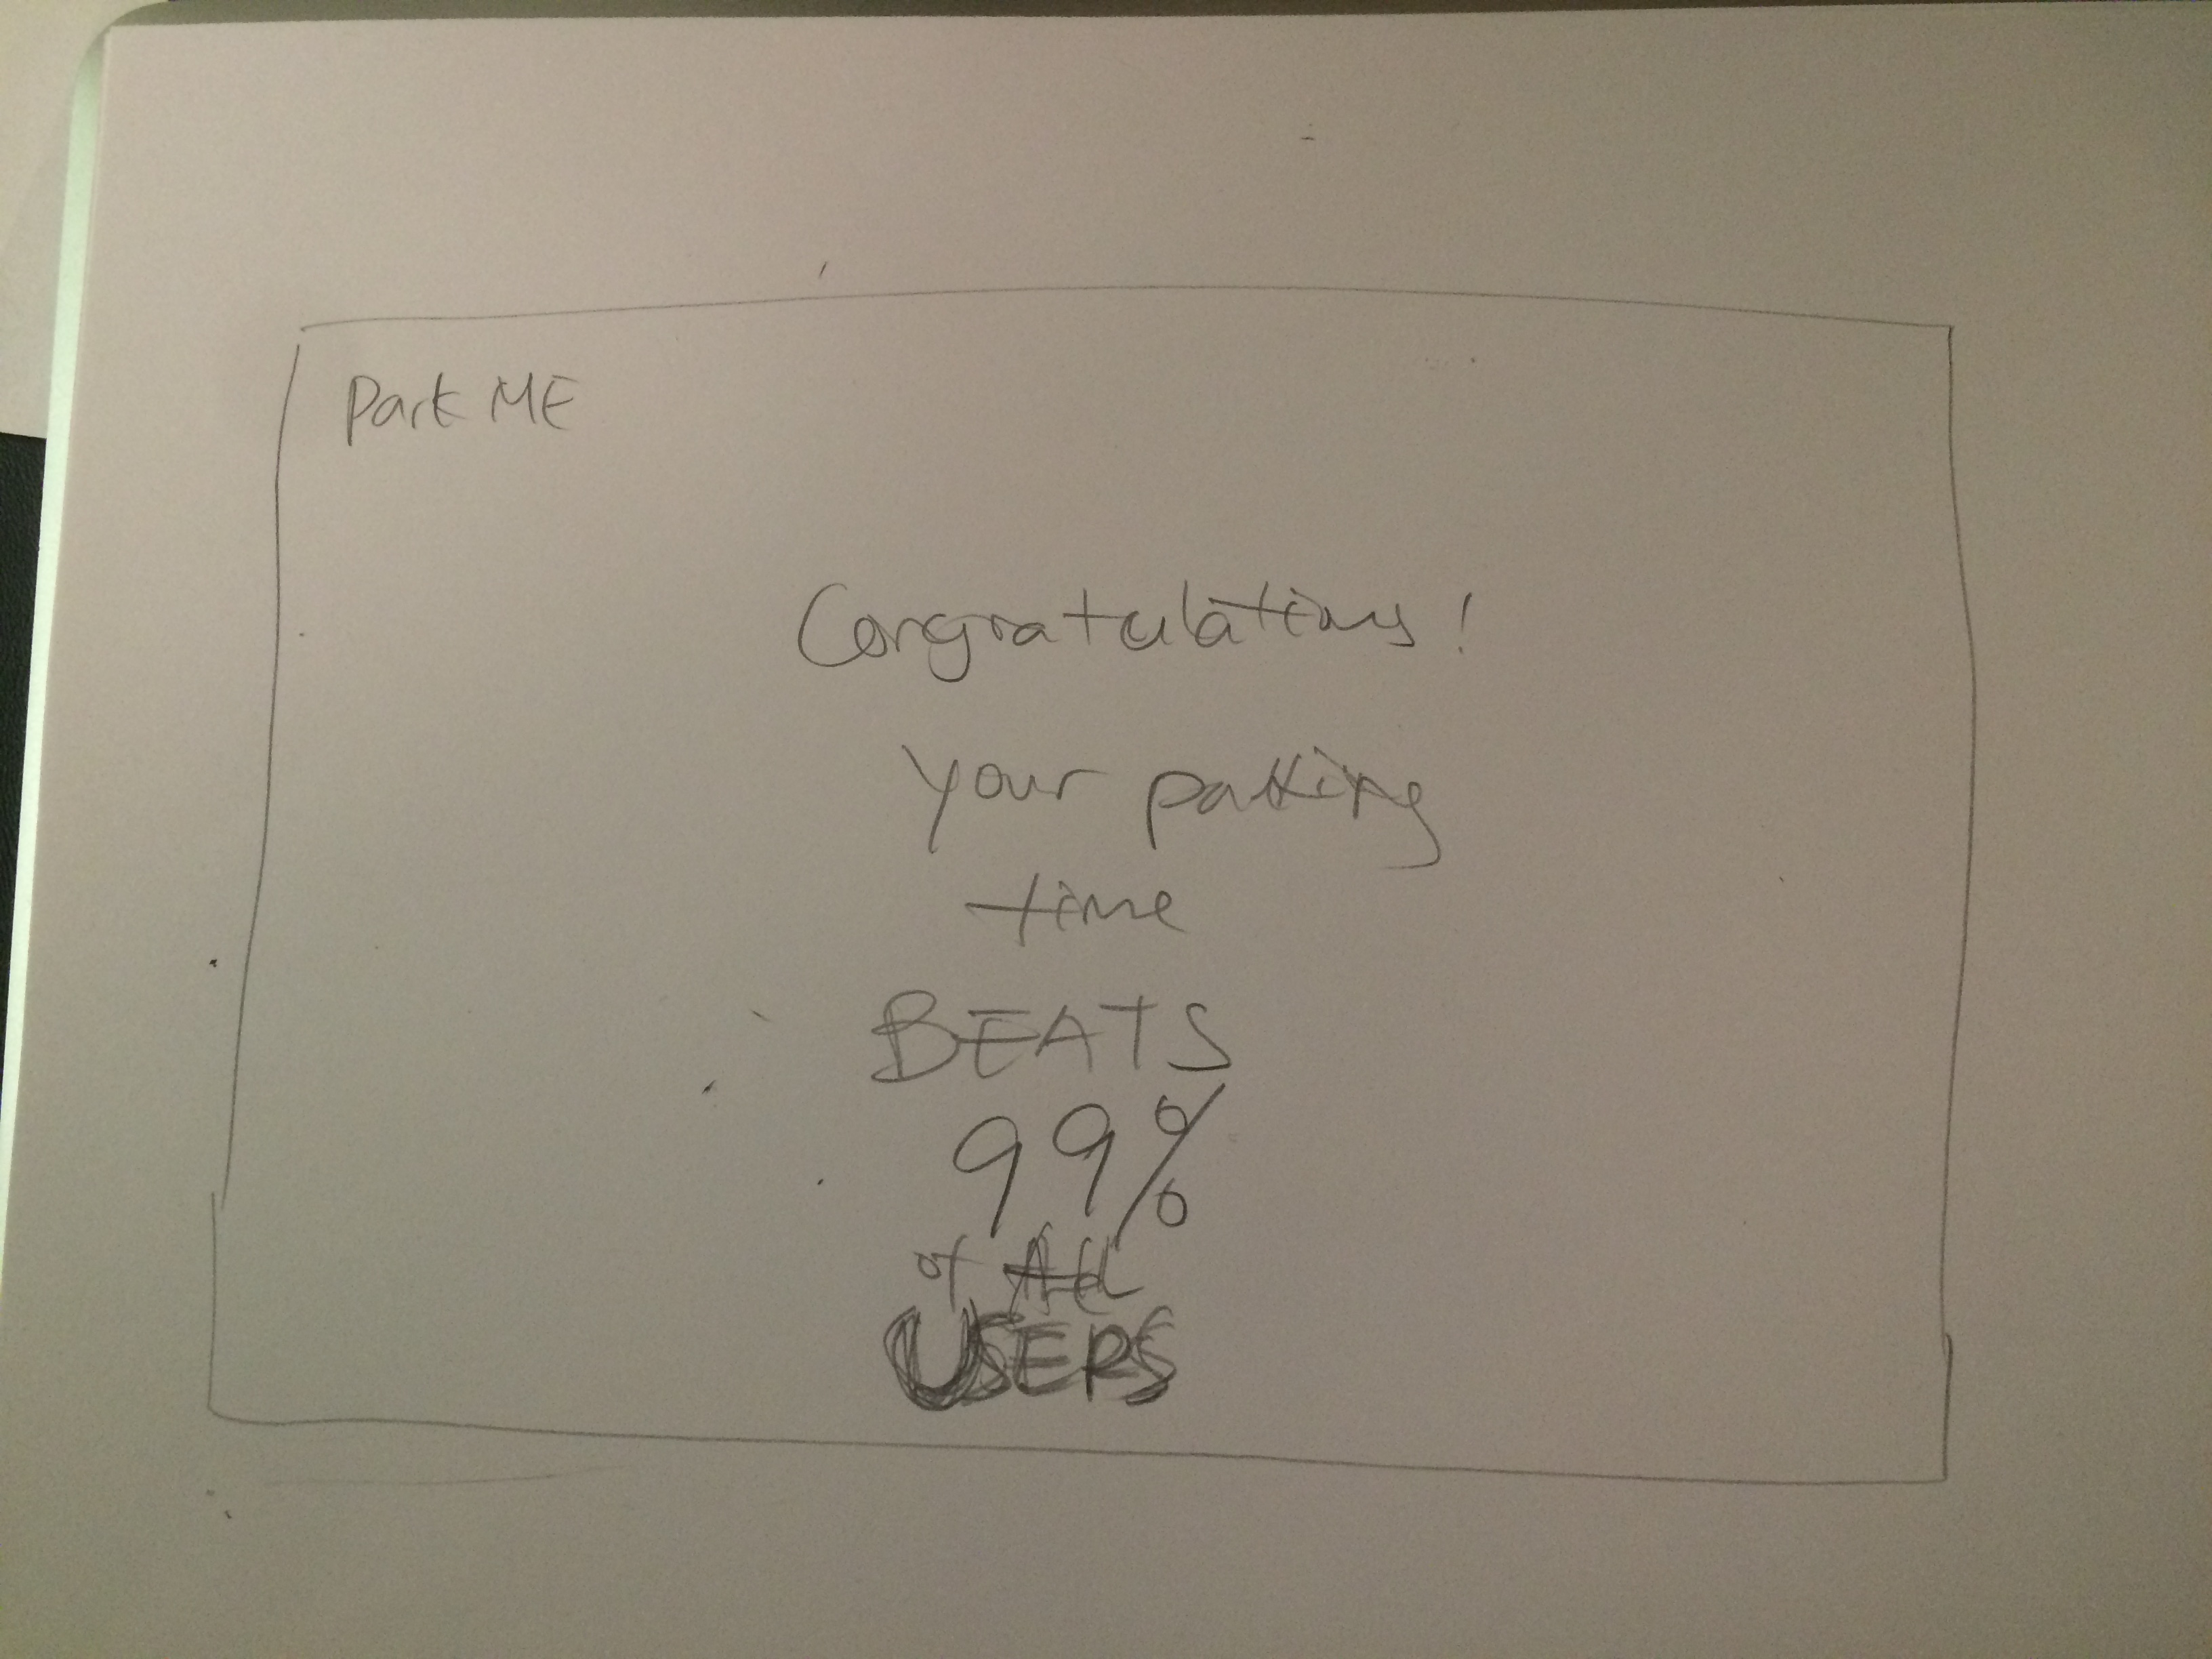 Park ME
Congratulations!
your parking
time
BEATS
99%
of the
USERS